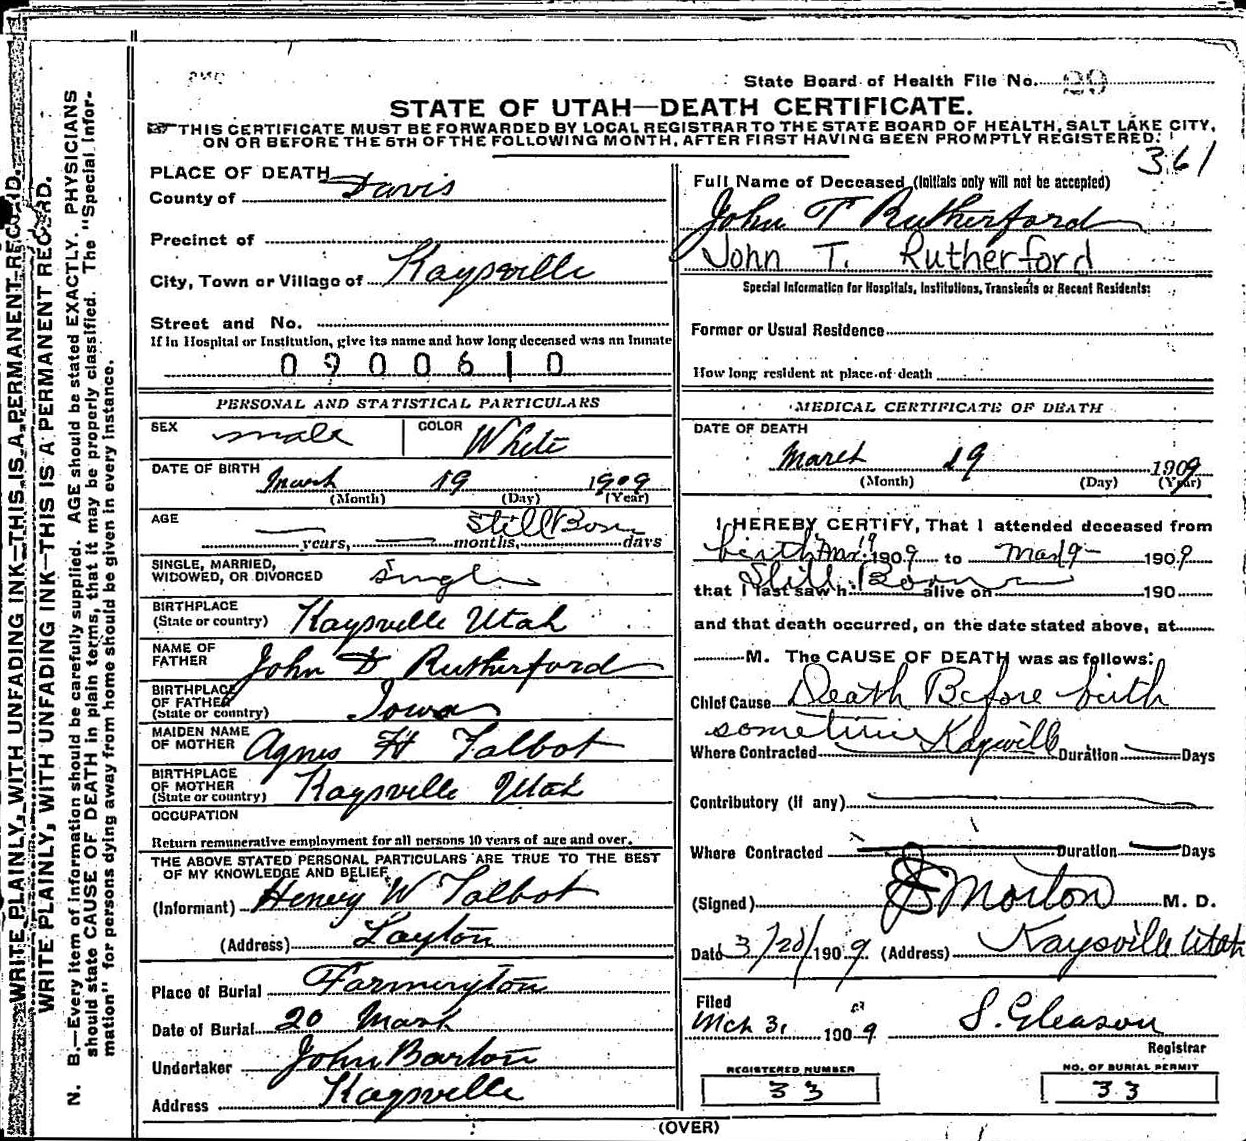 State Board of Health File No. 29
STATE OF UTAH—DEATH CERTIFICATE.
THIS CERTIFICATE MUST BE FORWARDED BY LOCAL REGISTRAR TO THE STATE BOARD OF HEALTH, SALT LAKE CITY,
ON OR BEFORE THE 5TH OF THE FOLLOWING MONTH, AFTER FIRST HAVING BEEN PROMPTLY REGISTERED.
361
PLACE OF DEATH
County of Davis
Precinct of
City, Town or Village of Kaysville
Street and No.
If in Hospital or Institution, give its name and how long deceased was an Inmate
0900610
PERSONAL AND STATISTICAL PARTICULARS
SEX male COLOR White
DATE OF BIRTH March 19 1909
(Month) (Day) (Year)
AGE Still Born
years, months, days
SINGLE, MARRIED,
WIDOWED, OR DIVORCED Single
BIRTHPLACE
(State or country) Kaysville Utah
NAME OF
FATHER John D Rutherford
BIRTHPLACE
OF FATHER
(State or country) Iowa
MAIDEN NAME
OF MOTHER Agnes H Talbot
BIRTHPLACE
OF MOTHER
(State or country) Kaysville Utah
OCCUPATION
Return remunerative employment for all persons 10 years of age and over.
THE ABOVE STATED PERSONAL PARTICULARS ARE TRUE TO THE BEST
OF MY KNOWLEDGE AND BELIEF
(Informant) Henry W Talbot
(Address) Layton
Place of Burial Farmington
Date of Burial 20 March
Undertaker John Barton
Address Kaysville
Full Name of Deceased (Initials only will not be accepted)
John T Rutherford
John T. Rutherford
Special Information for Hospitals, Institutions, Transients or Recent Residents:
Former or Usual Residence
How long resident at place of death
MEDICAL CERTIFICATE OF DEATH
DATE OF DEATH
March 19 1909
(Month) (Day) (Year)
I HEREBY CERTIFY, That I attended deceased from
birth Mar. 19 1909 to Mar 19 1909
Still Born
that I last saw h alive on 190
and that death occurred, on the date stated above, at
M. The CAUSE OF DEATH was as follows:
Chief Cause Death Before birth
sometime
Where Contracted Kaysville Duration Days
Contributory (if any)
Where Contracted Duration Days
(Signed) Morton M. D.
Date 3/20/1909. (Address) Kaysville Utah
Filed
Mch 31 1909 S. Gleason
Registrar
REGISTERED NUMBER
33
NO. OF BURIAL PERMIT
33
(OVER)
WRITE PLAINLY, WITH UNFADING INK—THIS IS A PERMANENT RECORD.
WRITE PLAINLY, WITH UNFADING INK—THIS IS A PERMANENT RECORD.
N. B.—Every item of information should be carefully supplied. AGE should be stated EXACTLY. PHYSICIANS
should state CAUSE OF DEATH in plain terms, that it may be properly classified. The "Special Infor-
mation" for persons dying away from home should be given in every instance.